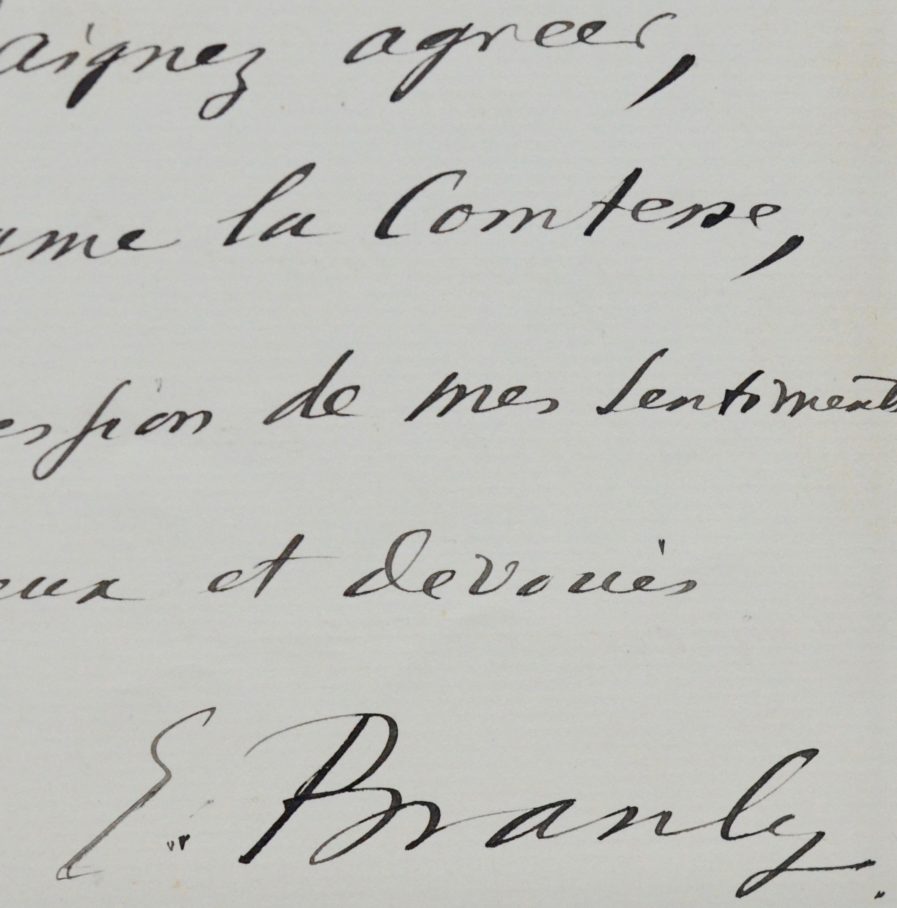 aignez agreer,
ame la Comtesse,
ession de mes sentiments
eux et devoués
E. Branly.